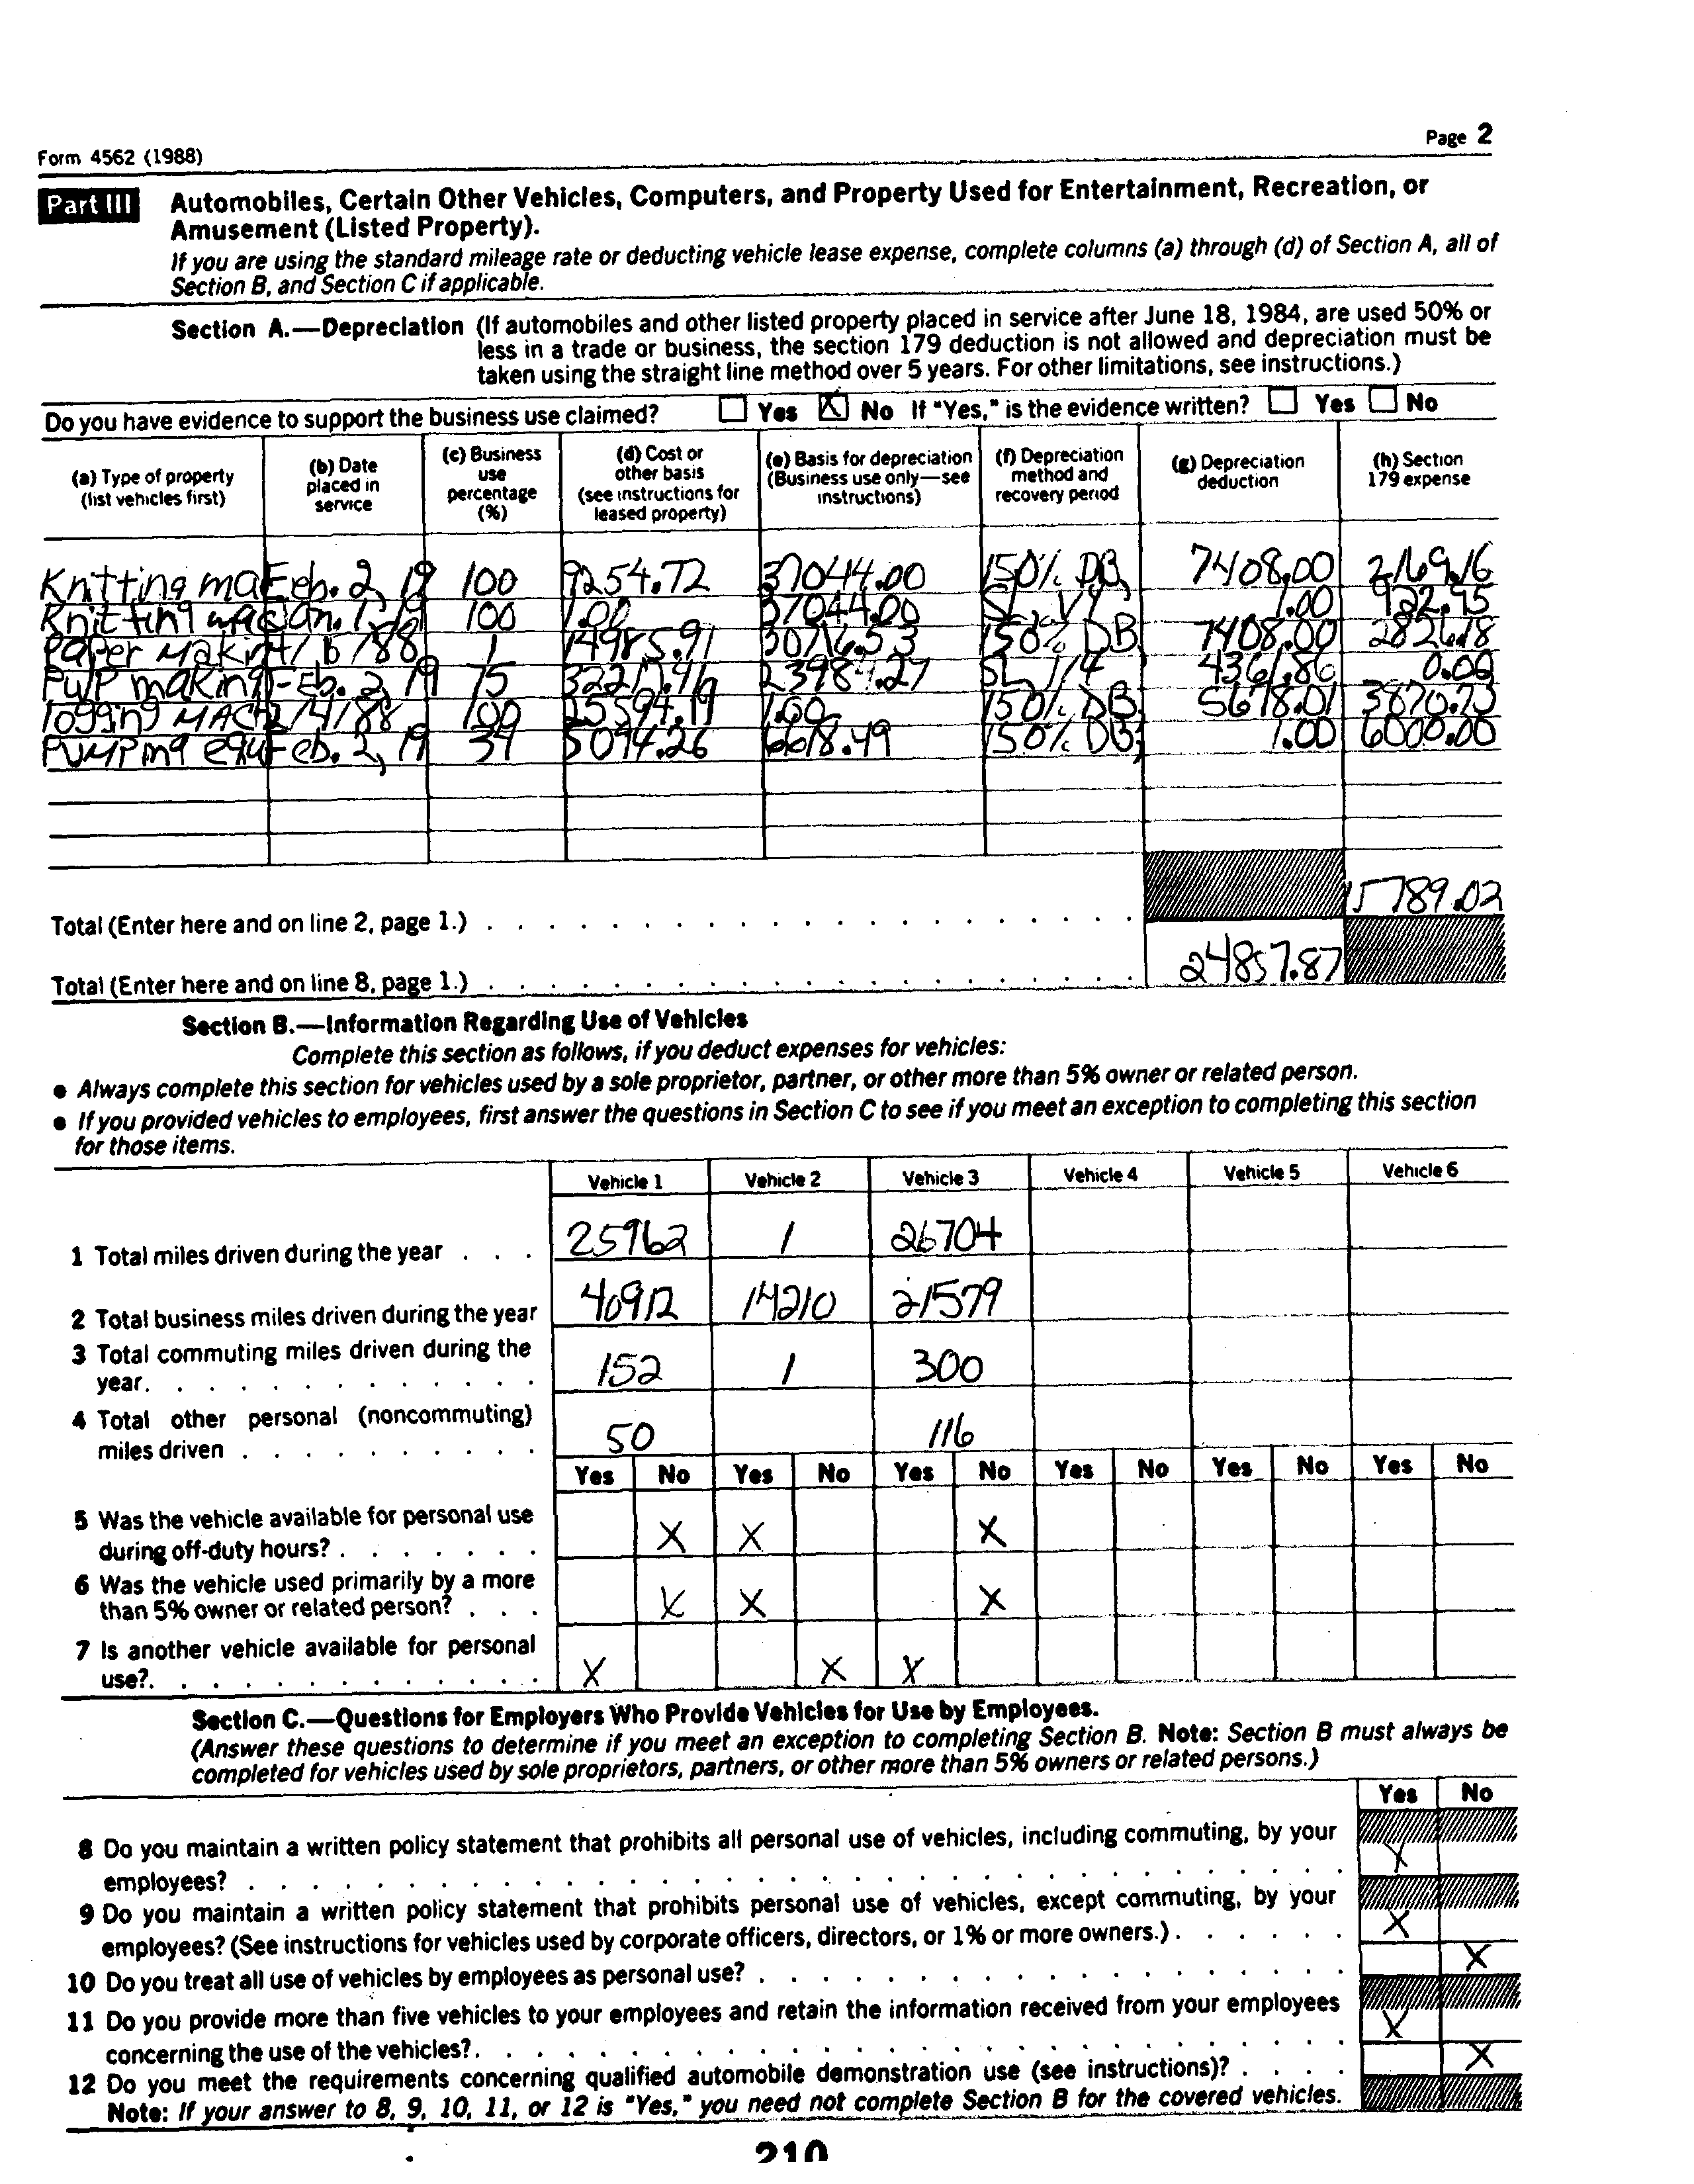 Form 4562 (1988)
Page 2
Part III Automobiles, Certain Other Vehicles, Computers, and Property Used for Entertainment, Recreation, or
Amusement (Listed Property).
If you are using the standard mileage rate or deducting vehicle lease expense, complete columns (a) through (d) of Section A, all of
Section B, and Section C if applicable.
Section A.—Depreciation (If automobiles and other listed property placed in service after June 18, 1984, are used 50% or
less in a trade or business, the section 179 deduction is not allowed and depreciation must be
taken using the straight line method over 5 years. For other limitations, see instructions.)
Do you have evidence to support the business use claimed? Yes X No If "Yes," is the evidence written? Yes No
(a) Type of property (list vehicles first)
(b) Date placed in service
(c) Business use percentage (%)
(d) Cost or other basis (see instructions for leased property)
(e) Basis for depreciation (Business use only—see instructions)
(f) Depreciation method and recovery period
(g) Depreciation deduction
(h) Section 179 expense
Knitting ma Feb. 2, 19 100 9254.72 37044.00 150% DB, 7408.00 2169.16
Knitting mac Jan. 1, 19 100 1.00 37044.00 SL, 1.00 922.95
Paper Makin 1 14985.91 30716.53 150% DB 7408.00 2826.18
Pulp making Feb. 2, 19 75 SL, 1/4 4361.86 0.00
logging MACH 2/4/88 100 25594.19 1.00 150% DB, 5678.01 3870.73
PUMPing equ Feb. 2, 19 39 5094.26 6618.49 150% DB, 1.00 6000.00
15789.02
Total (Enter here and on line 2, page 1.)
24857.87
Total (Enter here and on line 8, page 1.)
Section B.—Information Regarding Use of Vehicles
Complete this section as follows, if you deduct expenses for vehicles:
● Always complete this section for vehicles used by a sole proprietor, partner, or other more than 5% owner or related person.
● If you provided vehicles to employees, first answer the questions in Section C to see if you meet an exception to completing this section
for those items.
Vehicle 1 Vehicle 2 Vehicle 3 Vehicle 4 Vehicle 5 Vehicle 6
1 Total miles driven during the year . . . 25962 1 26704
2 Total business miles driven during the year 40912 14210 21579
3 Total commuting miles driven during the
year. 152 1 300
4 Total other personal (noncommuting)
miles driven 50 116
Yes No Yes No Yes No Yes No Yes No Yes No
5 Was the vehicle available for personal use
during off-duty hours? X X X
6 Was the vehicle used primarily by a more
than 5% owner or related person? X X X
7 Is another vehicle available for personal
use? X X X
Section C.—Questions for Employers Who Provide Vehicles for Use by Employees.
(Answer these questions to determine if you meet an exception to completing Section B. Note: Section B must always be
completed for vehicles used by sole proprietors, partners, or other more than 5% owners or related persons.)
Yes No
8 Do you maintain a written policy statement that prohibits all personal use of vehicles, including commuting, by your
employees? X
9 Do you maintain a written policy statement that prohibits personal use of vehicles, except commuting, by your
employees? (See instructions for vehicles used by corporate officers, directors, or 1% or more owners.) X
10 Do you treat all use of vehicles by employees as personal use? X
11 Do you provide more than five vehicles to your employees and retain the information received from your employees
concerning the use of the vehicles? X
12 Do you meet the requirements concerning qualified automobile demonstration use (see instructions)? X
Note: If your answer to 8, 9, 10, 11, or 12 is "Yes," you need not complete Section B for the covered vehicles.
210